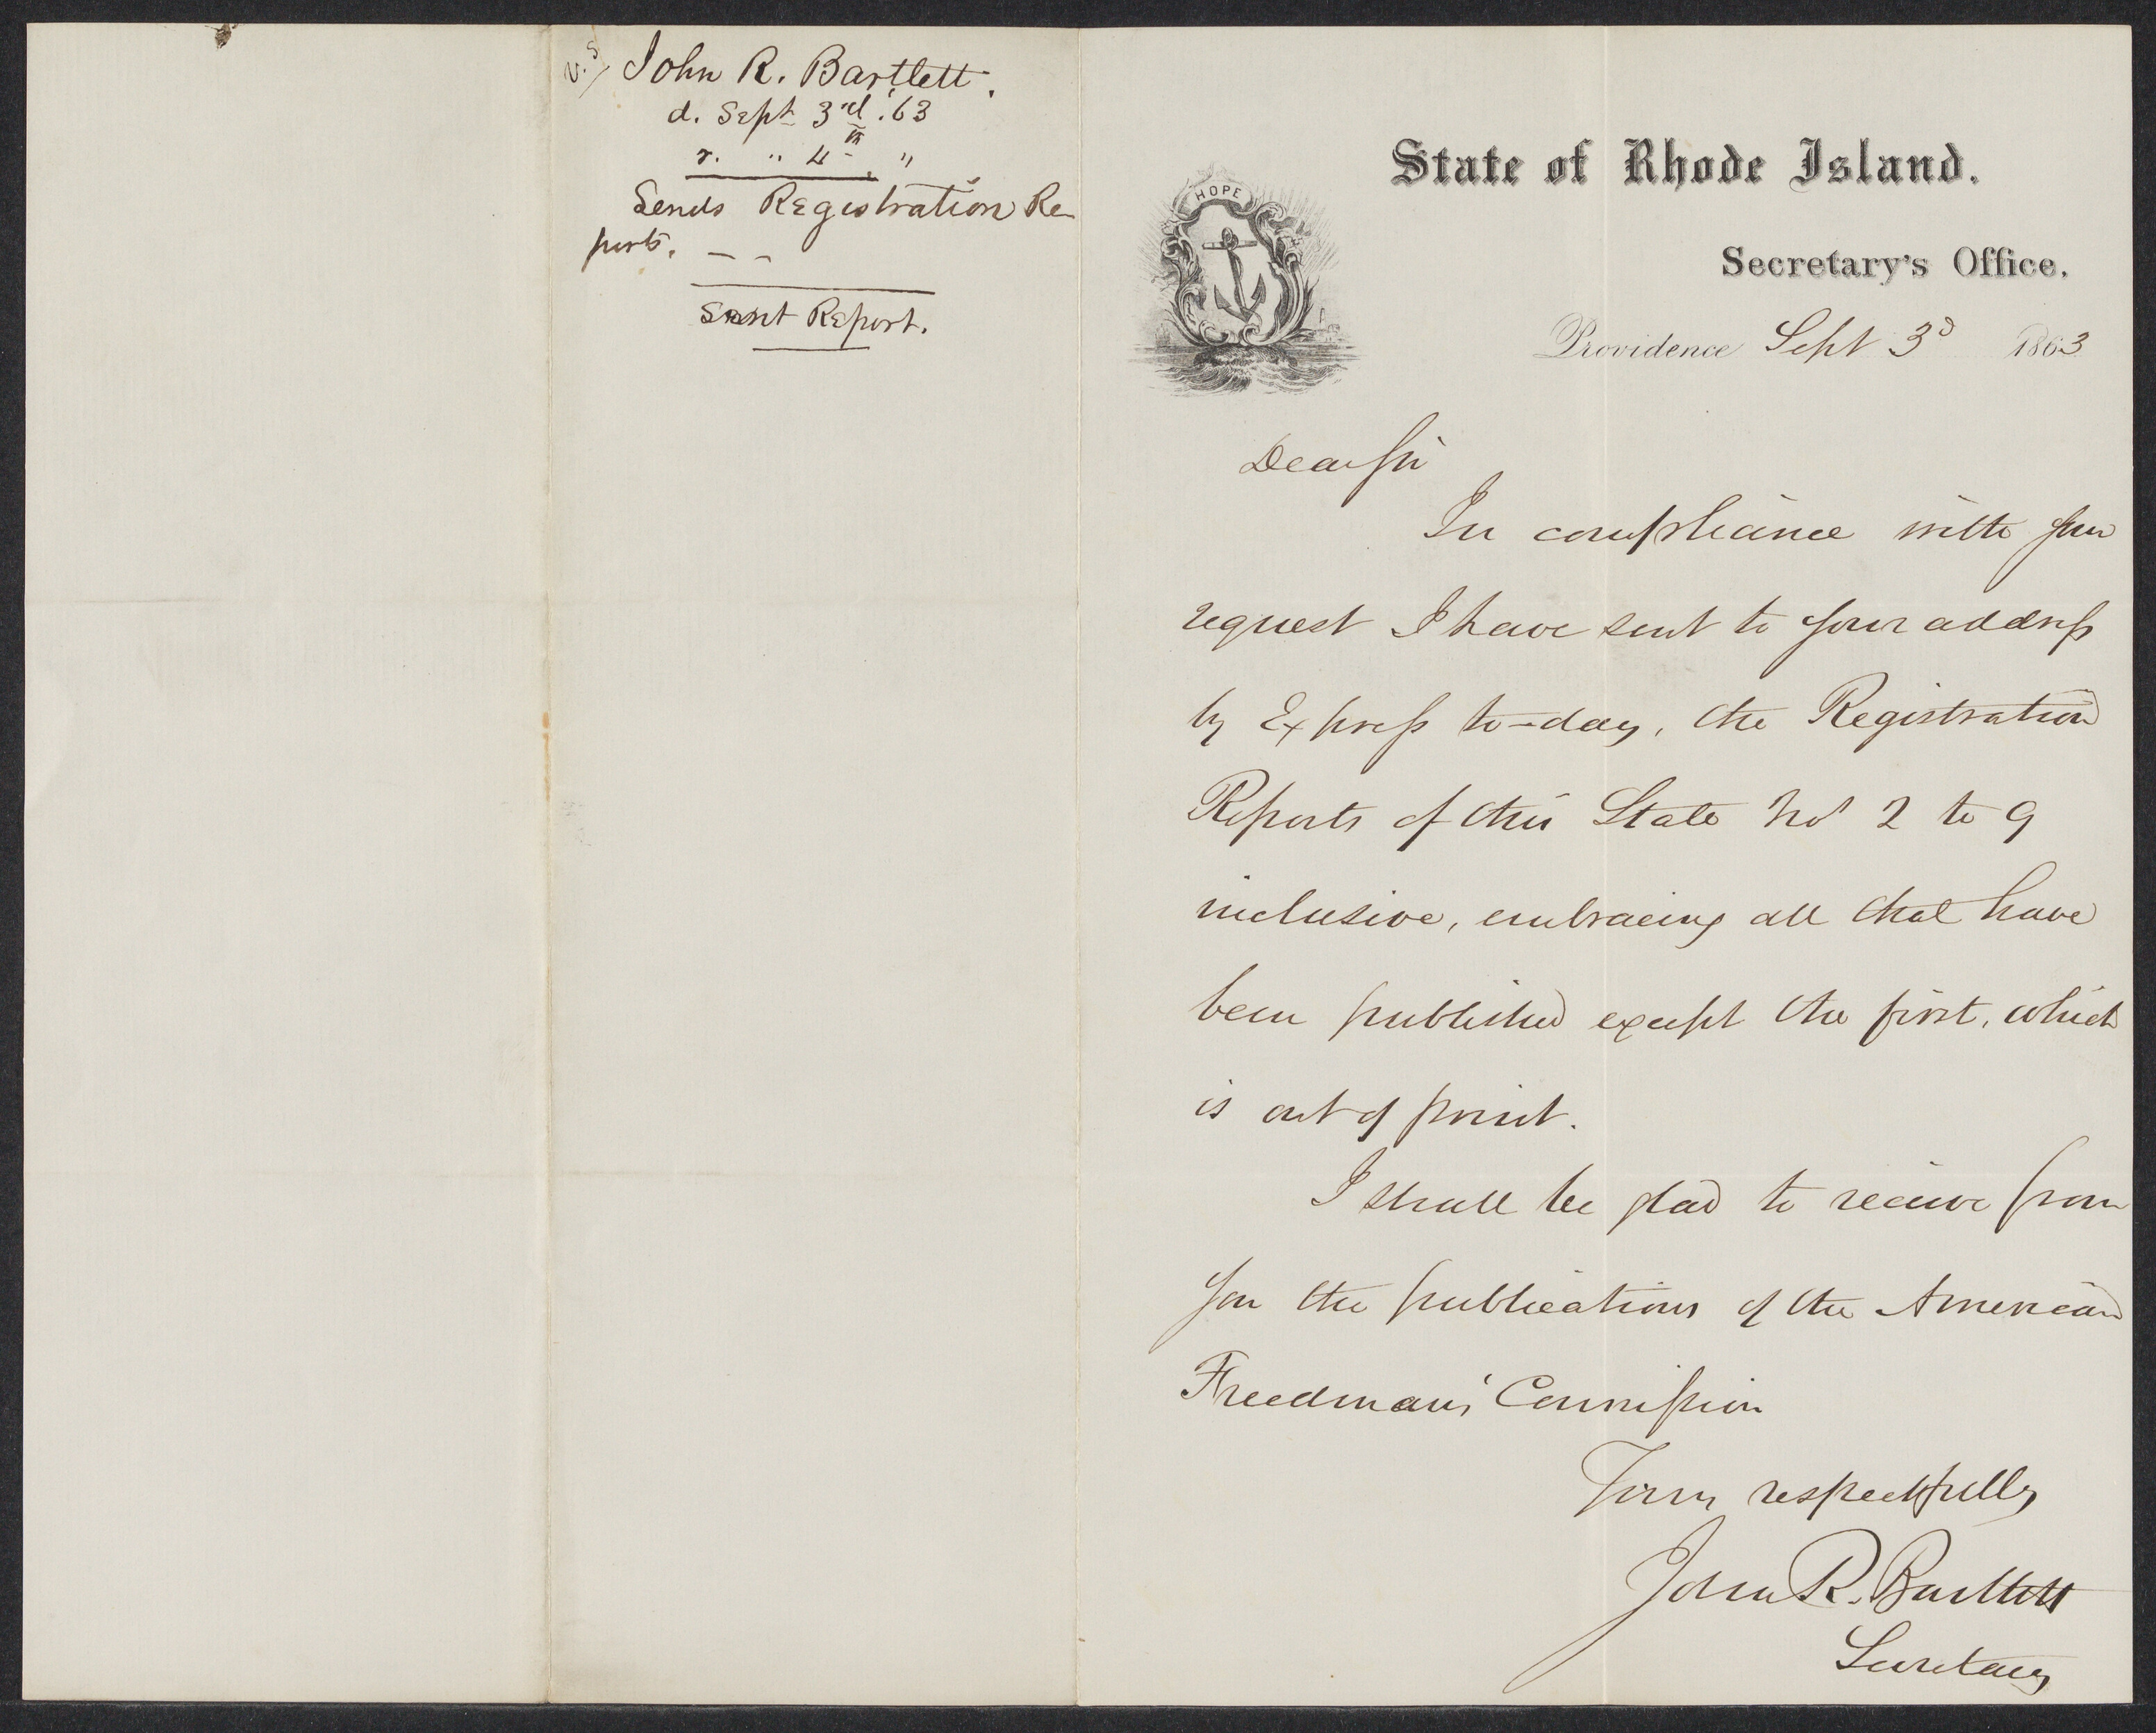 v.s.
John R. Bartlett.
d. Sept 3rd. '63
r. " 4th "
Sends Registration Re-
ports. _ _
Sent Report.
HOPE
State of Rhode Island.
Secretary's Office.
Providence Sept 3d 1863
Dear Sir
In compliance with your
request I have sent to your address
by Express to-day, the Registration
Reports of this State Nos 2 to 9
inclusive, embracing all that have
been published except the first, which
is out of print.
I shall be glad to receive from
you the publications of the American
Freedman's Commission
Yours respectfully
John R. Bartlett
Secretary